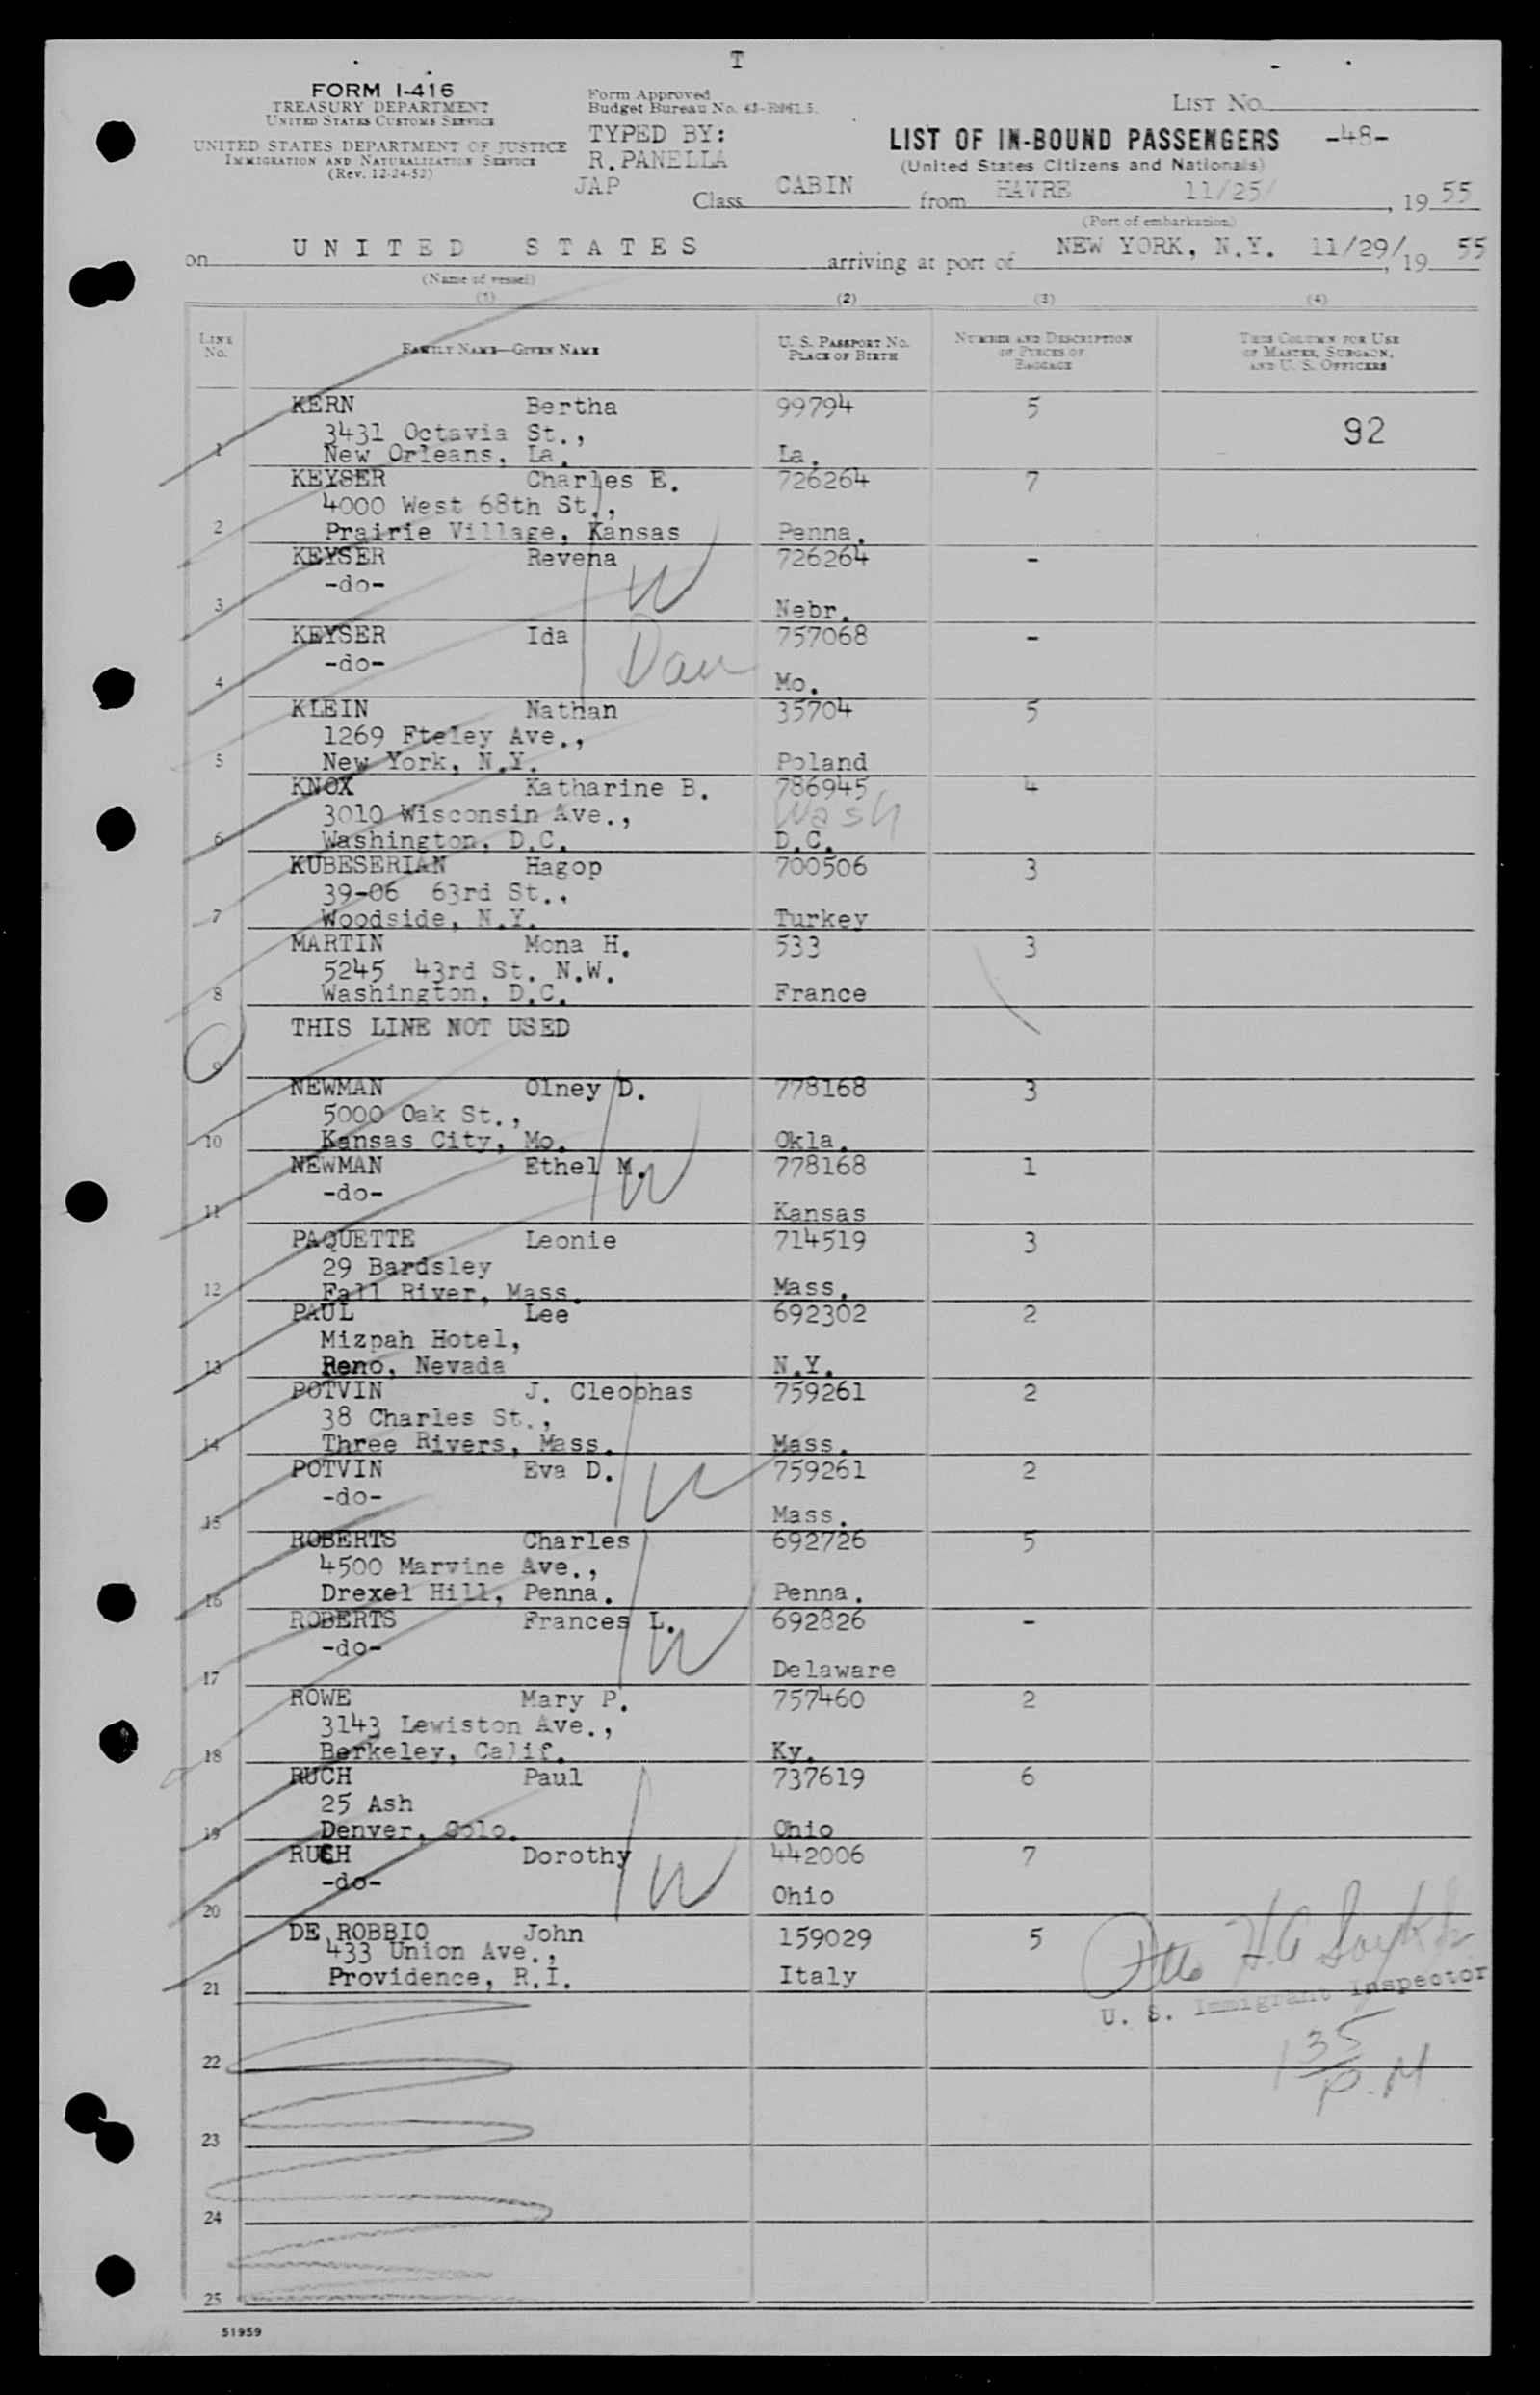 T
FORM I-416
TREASURY DEPARTMENT
UNITED STATES CUSTOMS SERVICE
UNITED STATES DEPARTMENT OF JUSTICE
IMMIGRATION AND NATURALIZATION SERVICE
(Rev. 12-24-52)
Form Approved
Budget Bureau No.
TYPED BY:
R. PANELLA
JAP
LIST NO.
LIST OF IN-BOUND PASSENGERS -48-
(United States Citizens and Nationals)
Class CABIN from HAVRE 11/25/, 19 55
(Port of embarkation)
on UNITED STATES arriving at port of NEW YORK, N.Y. 11/29/, 19 55
(Name of vessel)
(1) (2) (3) (4)
LINE No. FAMILY NAME—GIVEN NAME U. S. PASSPORT NO. PLACE OF BIRTH NUMBER AND DESCRIPTION OF PIECES OF BAGGAGE THIS COLUMN FOR USE OF MASTER, SURGEON, AND U. S. OFFICERS
KERN Bertha 99794 5
3431 Octavia St., 92
1 New Orleans, La. La.
KEYSER Charles E. 726264 7
4000 West 68th St.,
2 Prairie Village, Kansas Penna.
KEYSER Revena 726264 -
-do- W
3 Nebr.
KEYSER Ida 757068 -
-do- Dau
4 Mo.
KLEIN Nathan 35704 5
1269 Fteley Ave.,
5 New York, N.Y. Poland
KNOX Katharine B. 786945 4
3010 Wisconsin Ave., Wash
6 Washington, D.C. D.C.
KUBESERIAN Hagop 700506 3
39-06 63rd St.,
7 Woodside, N.Y. Turkey
MARTIN Mona H. 533 3
5245 43rd St. N.W.
8 Washington, D.C. France
THIS LINE NOT USED
9
NEWMAN Olney D. 778168 3
5000 Oak St.,
10 Kansas City, Mo. Okla.
NEWMAN Ethel M. 778168 1
-do- W
11 Kansas
PAQUETTE Leonie 714519 3
29 Bardsley
12 Fall River, Mass. Mass.
PAUL Lee 692302 2
Mizpah Hotel,
13 Reno, Nevada N.Y.
POTVIN J. Cleophas 759261 2
38 Charles St.,
14 Three Rivers, Mass. Mass.
POTVIN Eva D. 759261 2
-do- W
15 Mass.
ROBERTS Charles 692726 5
4500 Marvine Ave.,
16 Drexel Hill, Penna. Penna.
ROBERTS Frances L. 692826 -
-do- W
17 Delaware
ROWE Mary P. 757460 2
3143 Lewiston Ave.,
18 Berkeley, Calif. Ky.
RUCH Paul 737619 6
25 Ash
19 Denver, Colo. Ohio
RUCH Dorothy 442006 7
-do- W Ohio
20
DE ROBBIO John 159029 5
433 Union Ave.,
21 Providence, R.I. Italy
U. S. Immigrant Inspector
1 35
P.M
22
23
24
25
51959